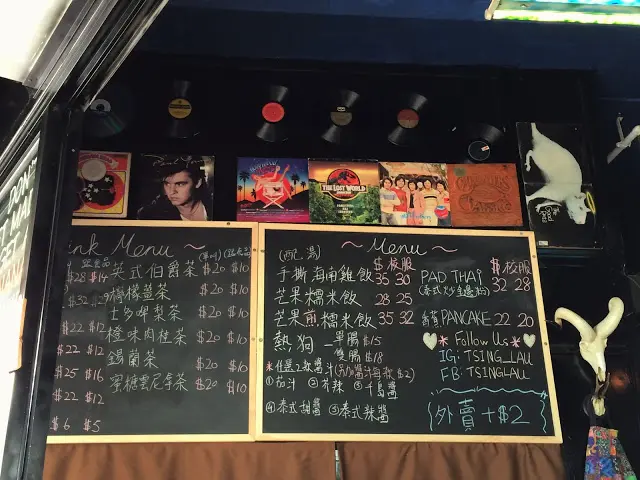 Paul Young
THE LOST WORLD
ink Menu ~ (單叫) (跟套餐)
$28 $14 英式伯爵茶 $20 $10
$32 檸檬薑茶 $20 $10
$22 $12 士多啤梨茶 $20 $10
$22 $12 橙味肉桂茶 $20 $10
$25 $16 錫蘭茶 $20 $10
$22 $12 蜜糖雲尼拿茶 $20 $10
$6 $5
(配湯) ~ Menu ~
$ 校服
手撕海南雞飯 35 30
芒果糯米飯 28 25
芒果煎糯米飯 35 32
熱狗 - 單腸 $15
雙腸 $18
*任選2款醬汁(另加醬汁每款$2)
①茄汁 ②芥辣 ③千島醬
④泰式甜醬 ⑤泰式辣醬
$ 校服
PAD THAI 32 28
(泰式炒金邊粉)
PANCAKE 22 20
* Follow Us *
IG: TSING_LAU
FB: TSINGLAU
外賣 + $2